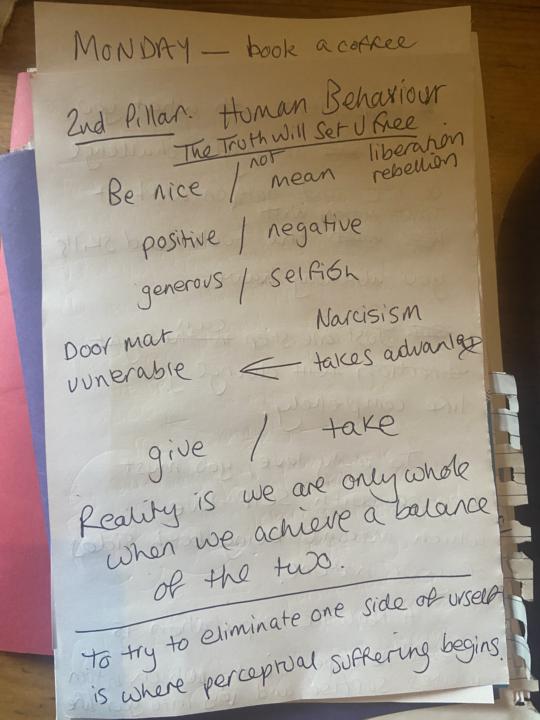 MONDAY — book a coffee
2nd Pillar. Human Behaviour
The Truth Will Set U Free
Be nice / not mean liberation
rebellion
positive / negative
generous / selfish
Narcisism
Door mat
vunerable ← takes advantage
give / take
Reality is we are only whole
when we achieve a balance
of the two.
to try to eliminate one side of urself
is where perceptual suffering begins.